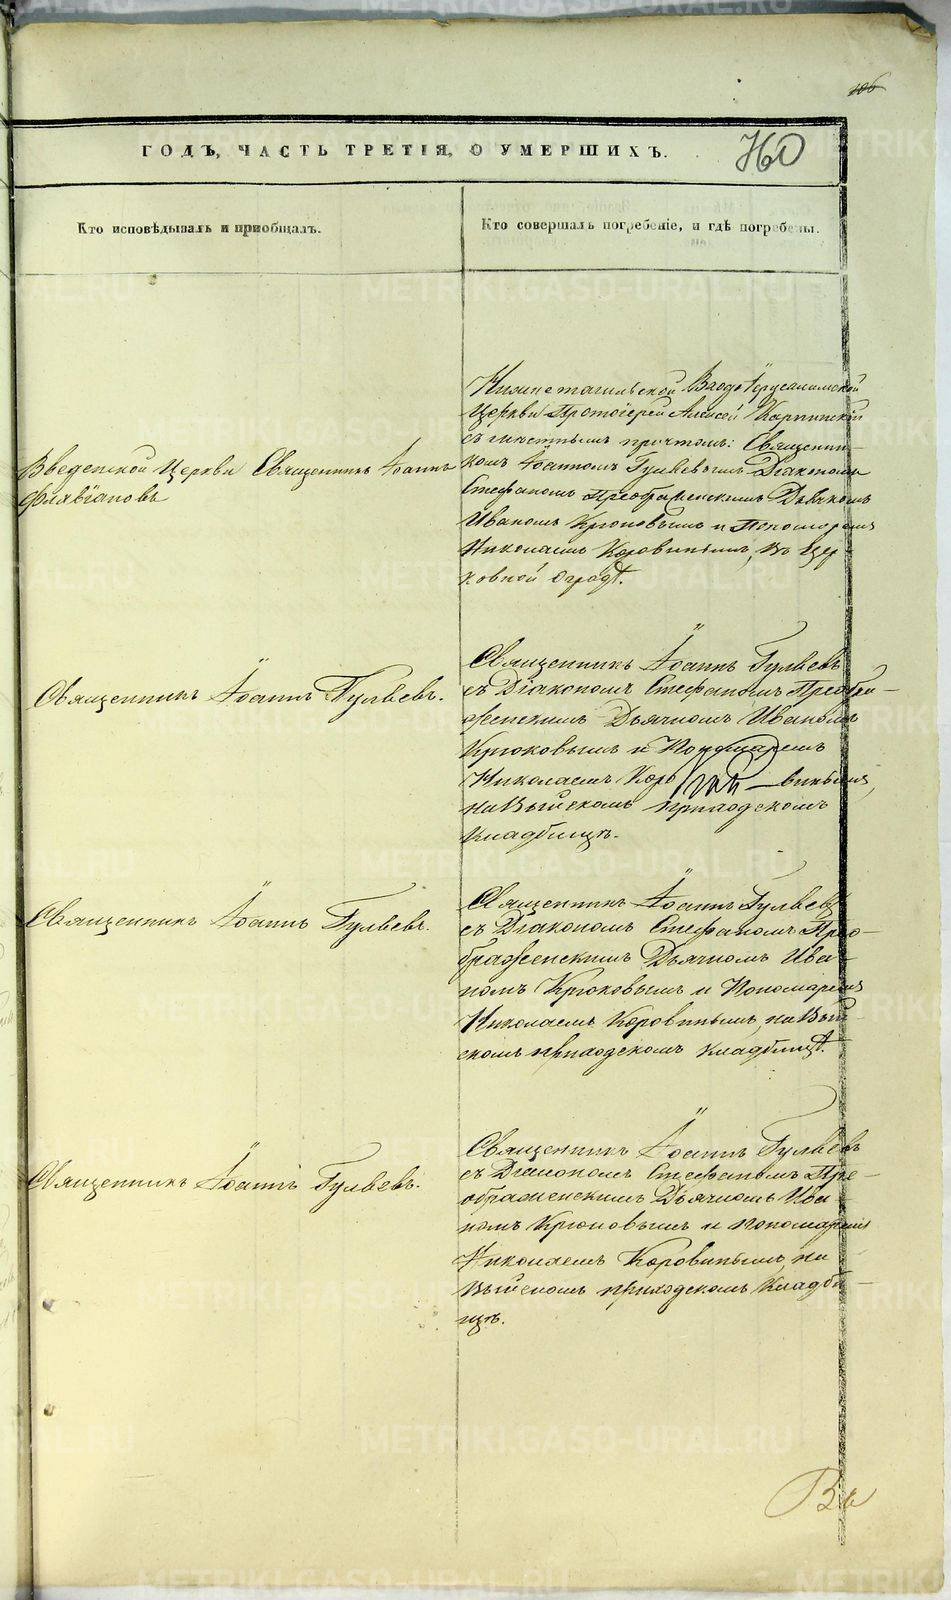 106
ГОДЪ, ЧАСТЬ ТРЕТІЯ, О УМЕРШИХЪ.
Кто исповѣдывалъ и пріобщалъ.
Кто совершалъ погребеніе, и гдѣ погребены.
Введенской Церкви Священникъ Іоаннъ
Флавіановъ
Нижнетагильской Входо Іерусалимской
Церкви Протоіерей Алексѣй Карпинскій
съ мѣстнымъ причтомъ: Священни-
комъ Іоанномъ Гуляевымъ Діакономъ
Стефаномъ Преображенскимъ Дьячкомъ
Иваномъ Крюковымъ и Пономаремъ
Николаемъ Коровинымъ, въ Цер-
ковной оградѣ.
Священникъ Іоаннъ Гуляевъ.
Священникъ Іоаннъ Гуляевъ
съ Діакономъ Стефаномъ Преобра-
женскимъ Дьячкомъ Иваномъ
Крюковымъ и Пономаремъ
Николаемъ Коро-винымъ,
на Выйскомъ приходскомъ
Кладбищѣ.
Священникъ Іоаннъ Гуляевъ.
Священникъ Іоаннъ Гуляевъ
съ Діакономъ Стефаномъ Прео-
браженскимъ Дьячкомъ Ива-
номъ Крюковымъ и Пономаремъ
Николаемъ Коровинымъ, на Вый-
скомъ приходскомъ кладбищѣ.
Священникъ Іоаннъ Гуляевъ.
Священникъ Іоаннъ Гуляевъ
съ Діакономъ Стефаномъ Пре-
ображенскимъ Дьячкомъ Ива-
номъ Крюковымъ и пономаремъ
Николаемъ Коровинымъ, на
Выйскомъ приходскомъ Кладби-
щѣ.
METRIKI.GASO-URAL.RU